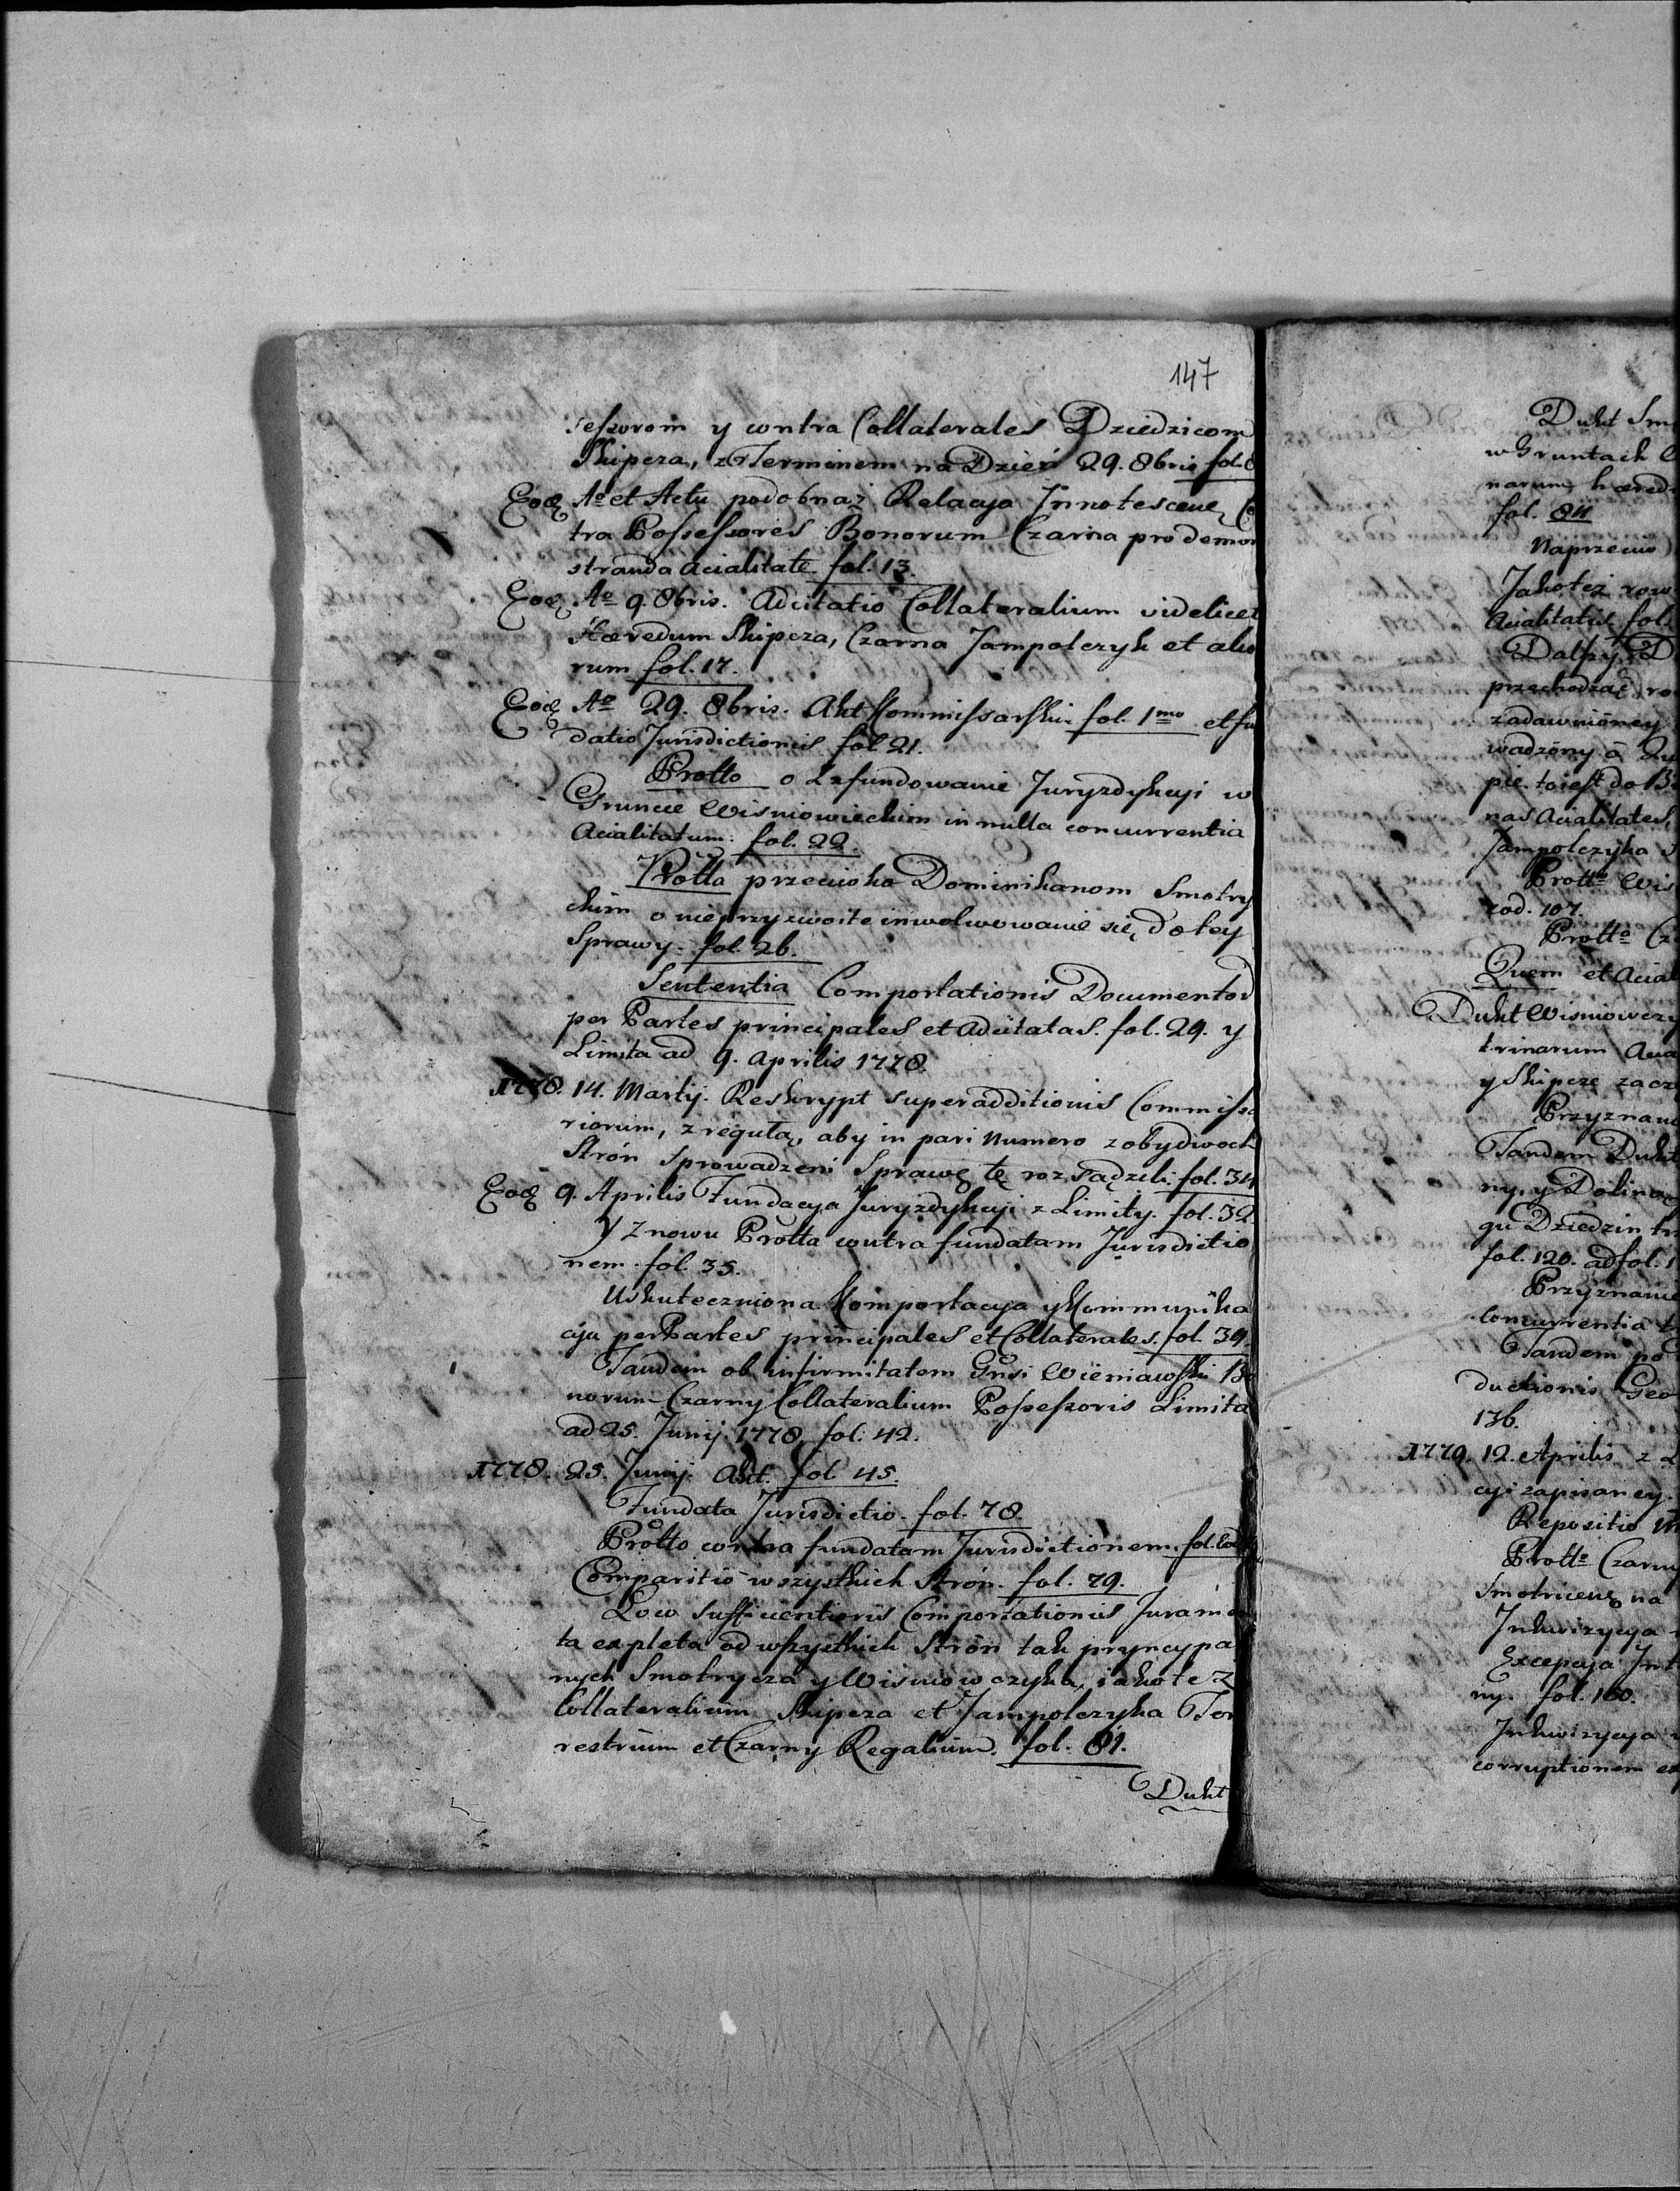 147
sessorom y contra Collaterales Dziedzicom
Skipcza, z Terminem na Dzień 29. 8bris fol.
Eod. Ao et Actu podobnaż Relacya Innotescen.
tra Possessores Bonorum Czarna pro demon
stranda acialitate fol. 13.
Eod. Ao 9. 8bris. Adcitatio Collateralium videlicet
Hæredum Skipcza, Czarna Jampolczyk et alio
rum fol. 17.
Eod. Ao 29. 8bris. Akt Kommissarski fol. 1mo et fu
datio Jurisdictionis fol. 21.
Protto o zafundowanie Juryzdykcyi w
Gruncie Wisniowieckim in nulla concurrentia
Acialitatum. fol. 22.
Protta przeciwko Dominikanom Smotry
ckim o nieprzyzwoite inwolwowanie się do tey
Sprawy. fol. 26.
Sententia Comportationis Documentor
per Partes principales et adcitatas. fol. 29. y
Limita ad 9. Aprilis 1778.
1778. 14. Martij. Reskrypt superadditionis Commissa
riorum, z regułą, aby in pari Numero z obydwoch
Strón sprowadzeni Sprawę tę rozsądzili. fol. 34
Eod. 9. Aprilis Fundacya Juryzdykcyi z Limity. fol. 32.
y znowu Protta contra fundatam Jurisdictio
nem. fol. 35.
Uskuteczniona Komportacya y Kommunika
cyja per Partes principales et Collaterales. fol. 39.
Tandem ob infirmitatem Gnsi Wieniawski Bo
norum Czarny Collateralium Possessoris Limita
ad 25. Junij 1778. fol. 42.
1778. 25. Junij. Akt. fol. 45.
Fundata Jurisdictio. fol. 78.
Protto contra fundatam Jurisdictionem. fol.
Comparitio wszystkich Strón. fol. 79.
Loco sufficientioris Comportationis Juramen
ta expleta od wszystkich Strón tak pryncypa
nych Smotrycza y Wisniowczyka, iakote z
Collateralium Skipcza et Jampolczyka Ter
restrium et Czarny Regalium. fol. 81.
Dukt
Dukt Smo
w Gruntach
narum hæredi
fol. 84
Naprzeciw
Jakoteż row
Acialitatis fol.
Dalszy D
przechodząc ro
zadawnioney
wadzony a
pie. toiest do
nas Acialitates,
Jampolczyka
Protto Wis
rod. 107.
Protto Cz
Quem et Acial
Dukt Wisniowczy
trinarum Acia
y Skipcze zacz
Przyznan
Tandem Dukt
ny, y Dolina
gu Dziedzin
fol. 120. ad fol. 1
Przyznanie
Concurrentia
Tandem po
ductionis Geo
136.
1779. 12. Aprilis z
cyi zapisaney.
Repositio
Protto Czarn
Smotricens. na
Inkwizycya
Excepcya Int
ny. fol. 160.
Inkwizycya
corruptionem ex